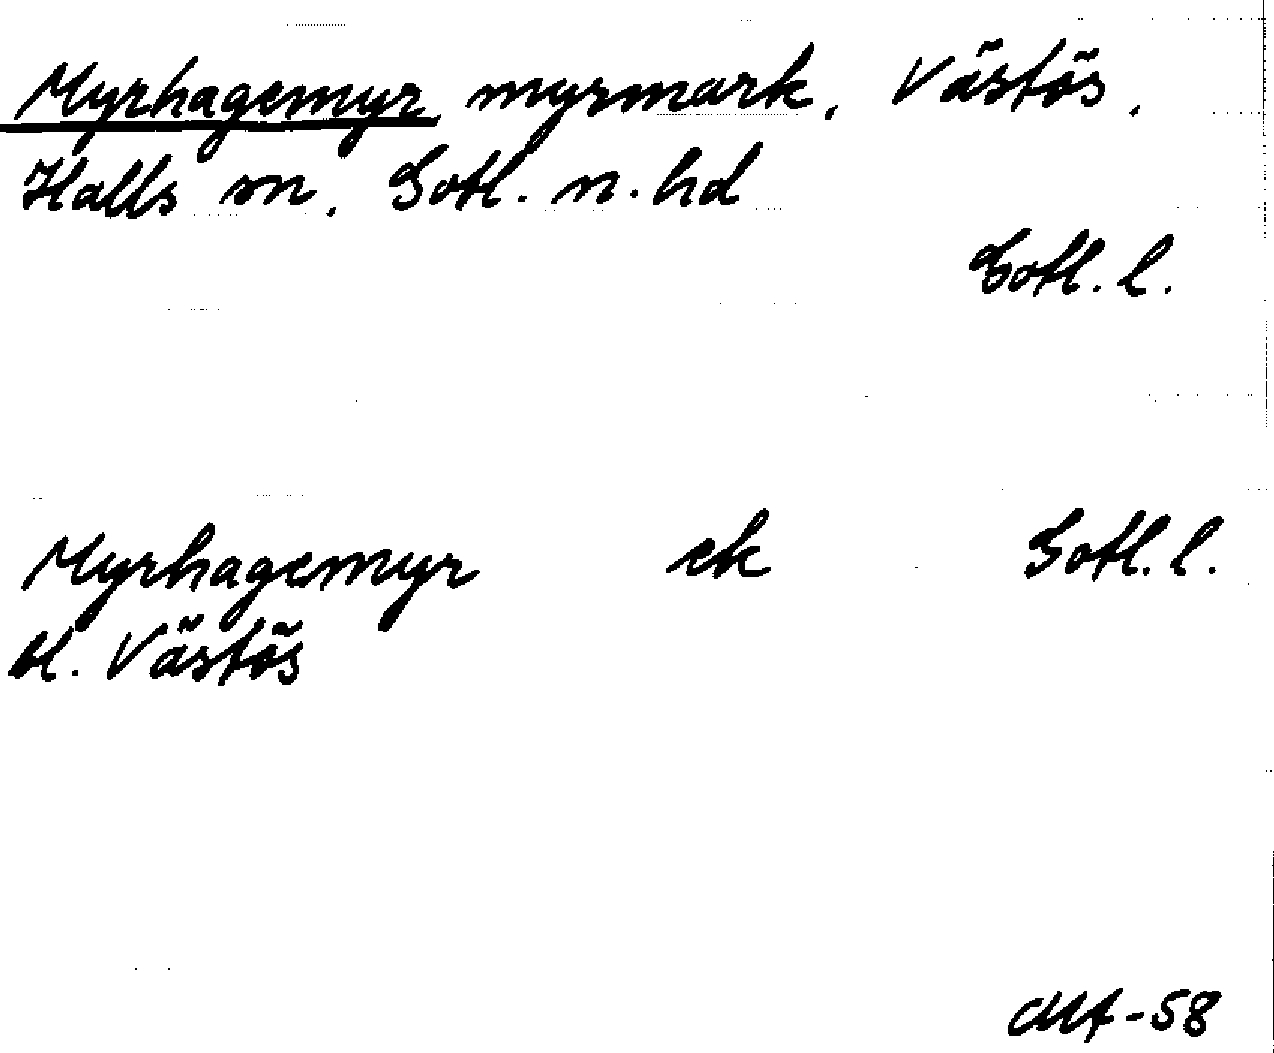 Myrhagemyr, myrmark, Västös,
Halls sn, Gotl. n. hd
Gotl. l.
Myrhagemyr ek Gotl. l.
bl. Västös
-58